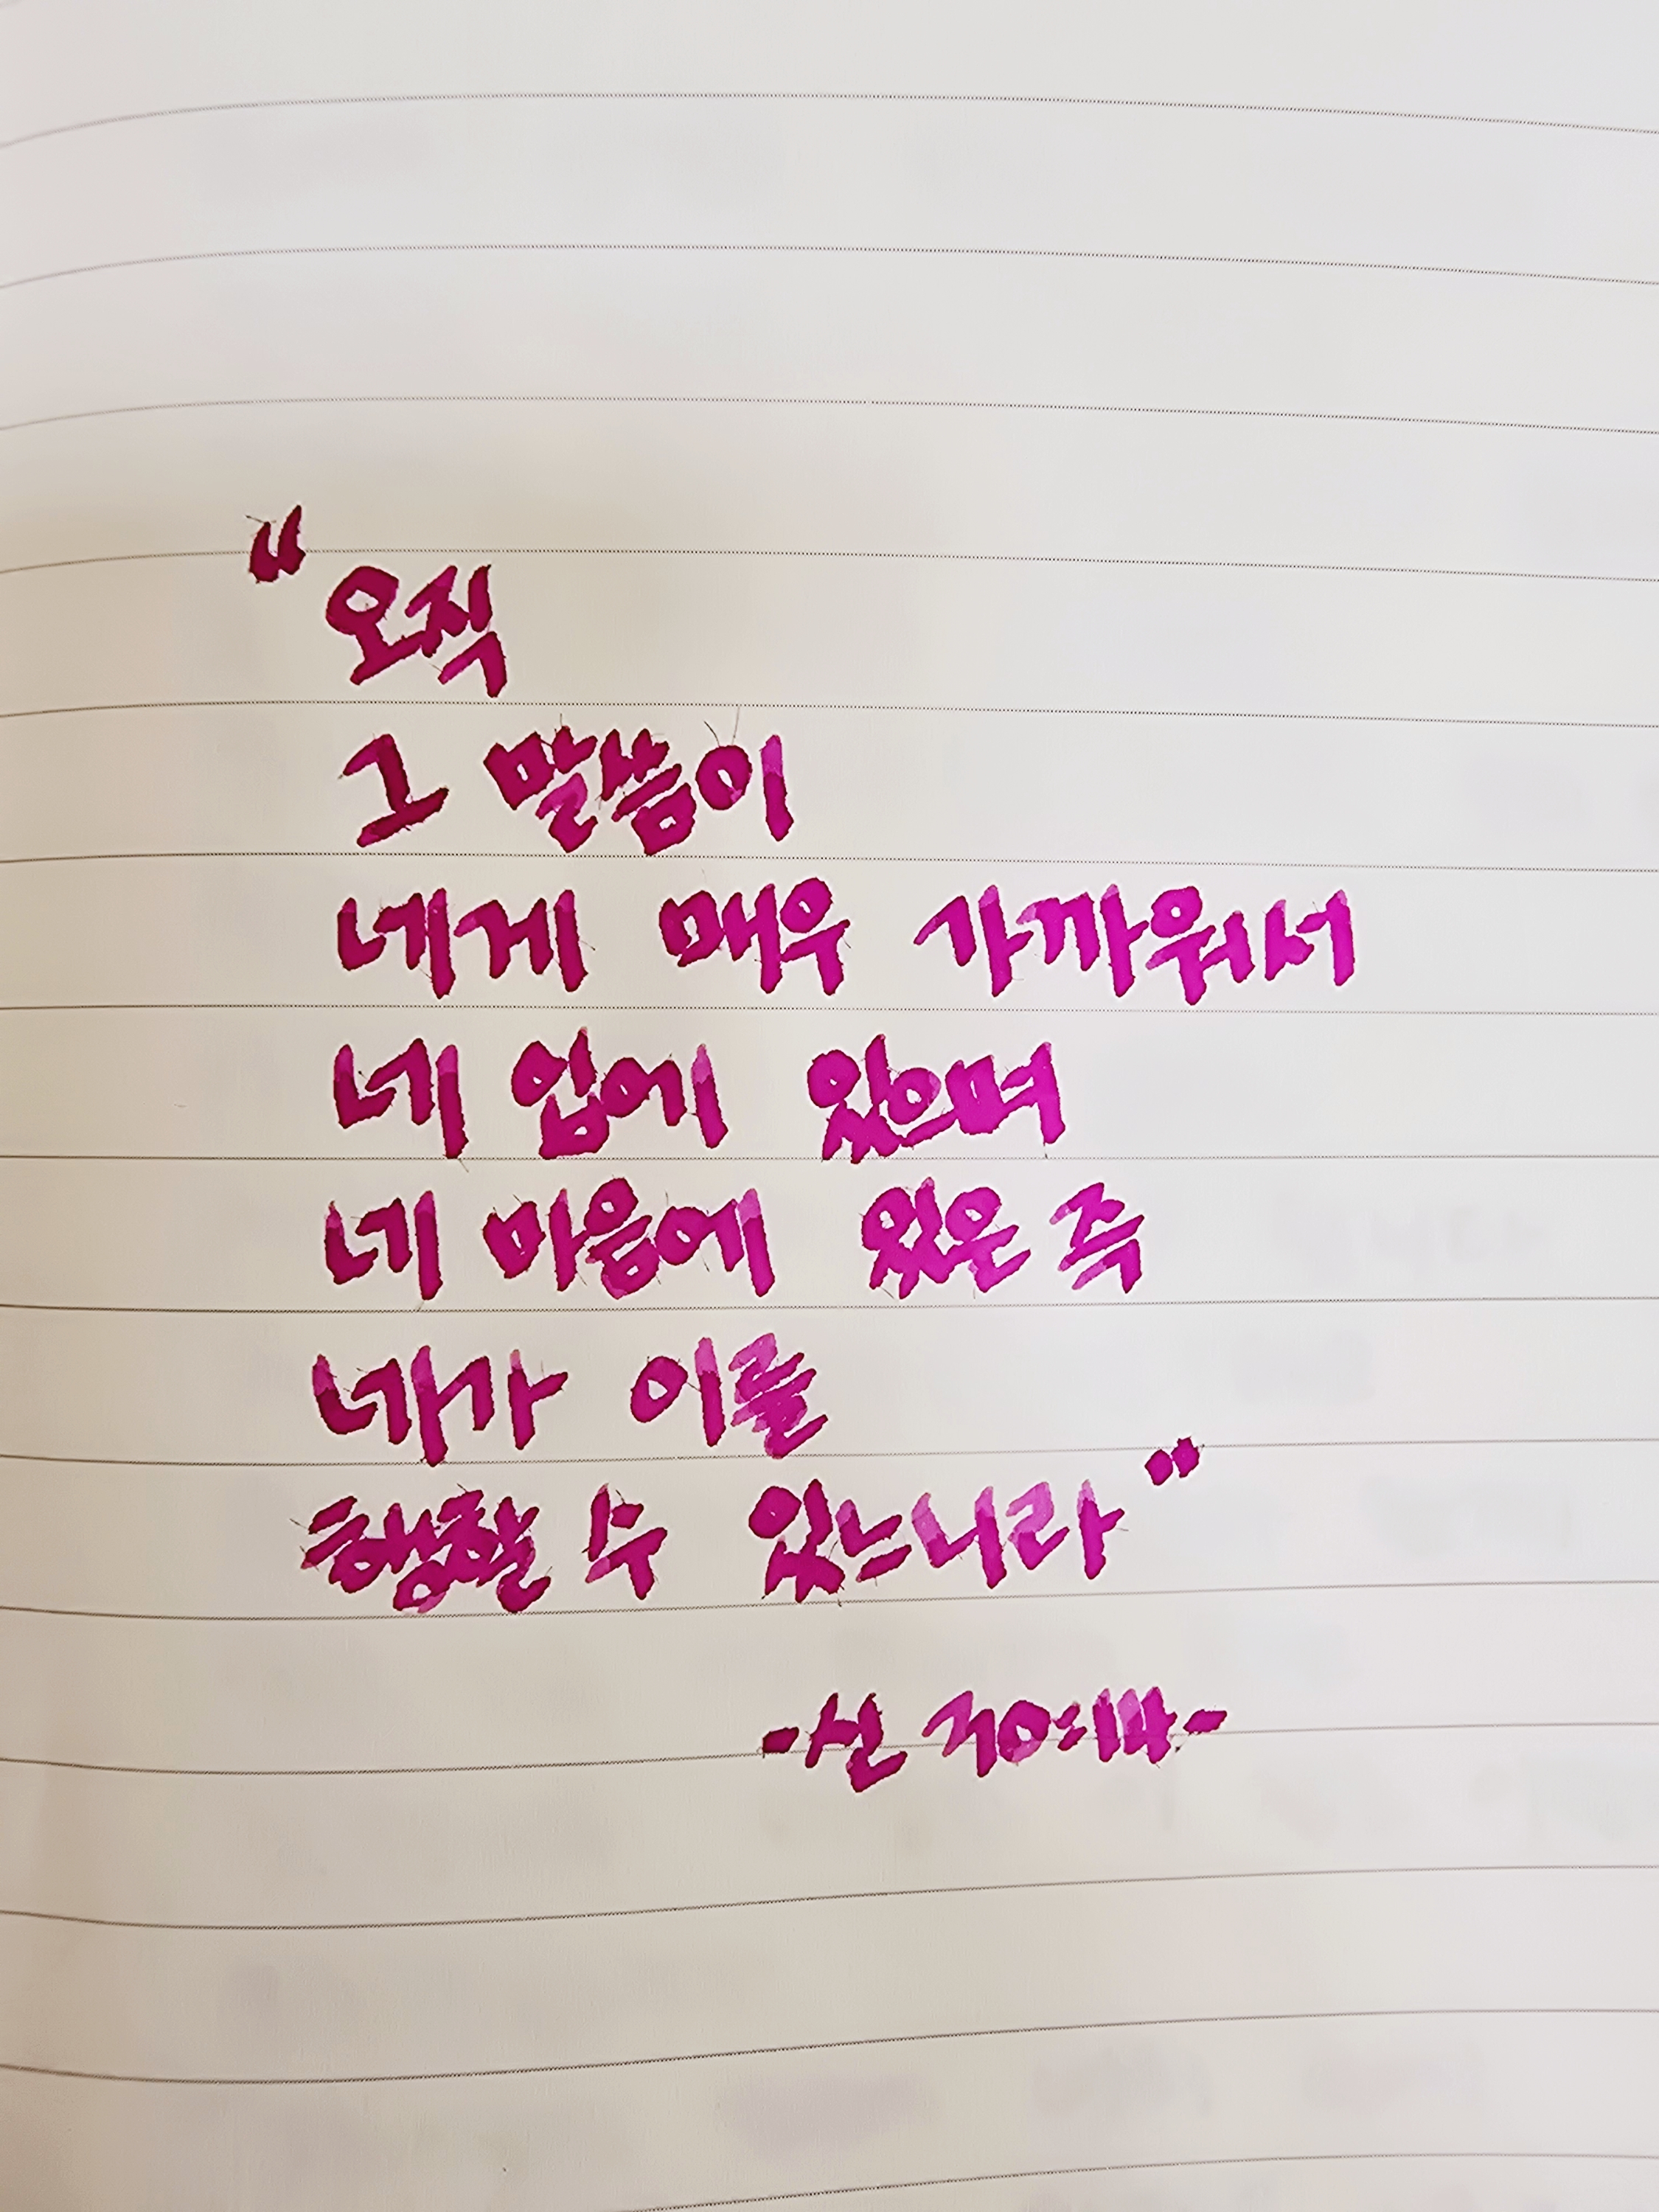 “오직
그 말씀이
네게 매우 가까워서
네 입에 있으며
네 마음에 있은 즉
네가 이를
행할 수 있느니라”
-신 30:14-